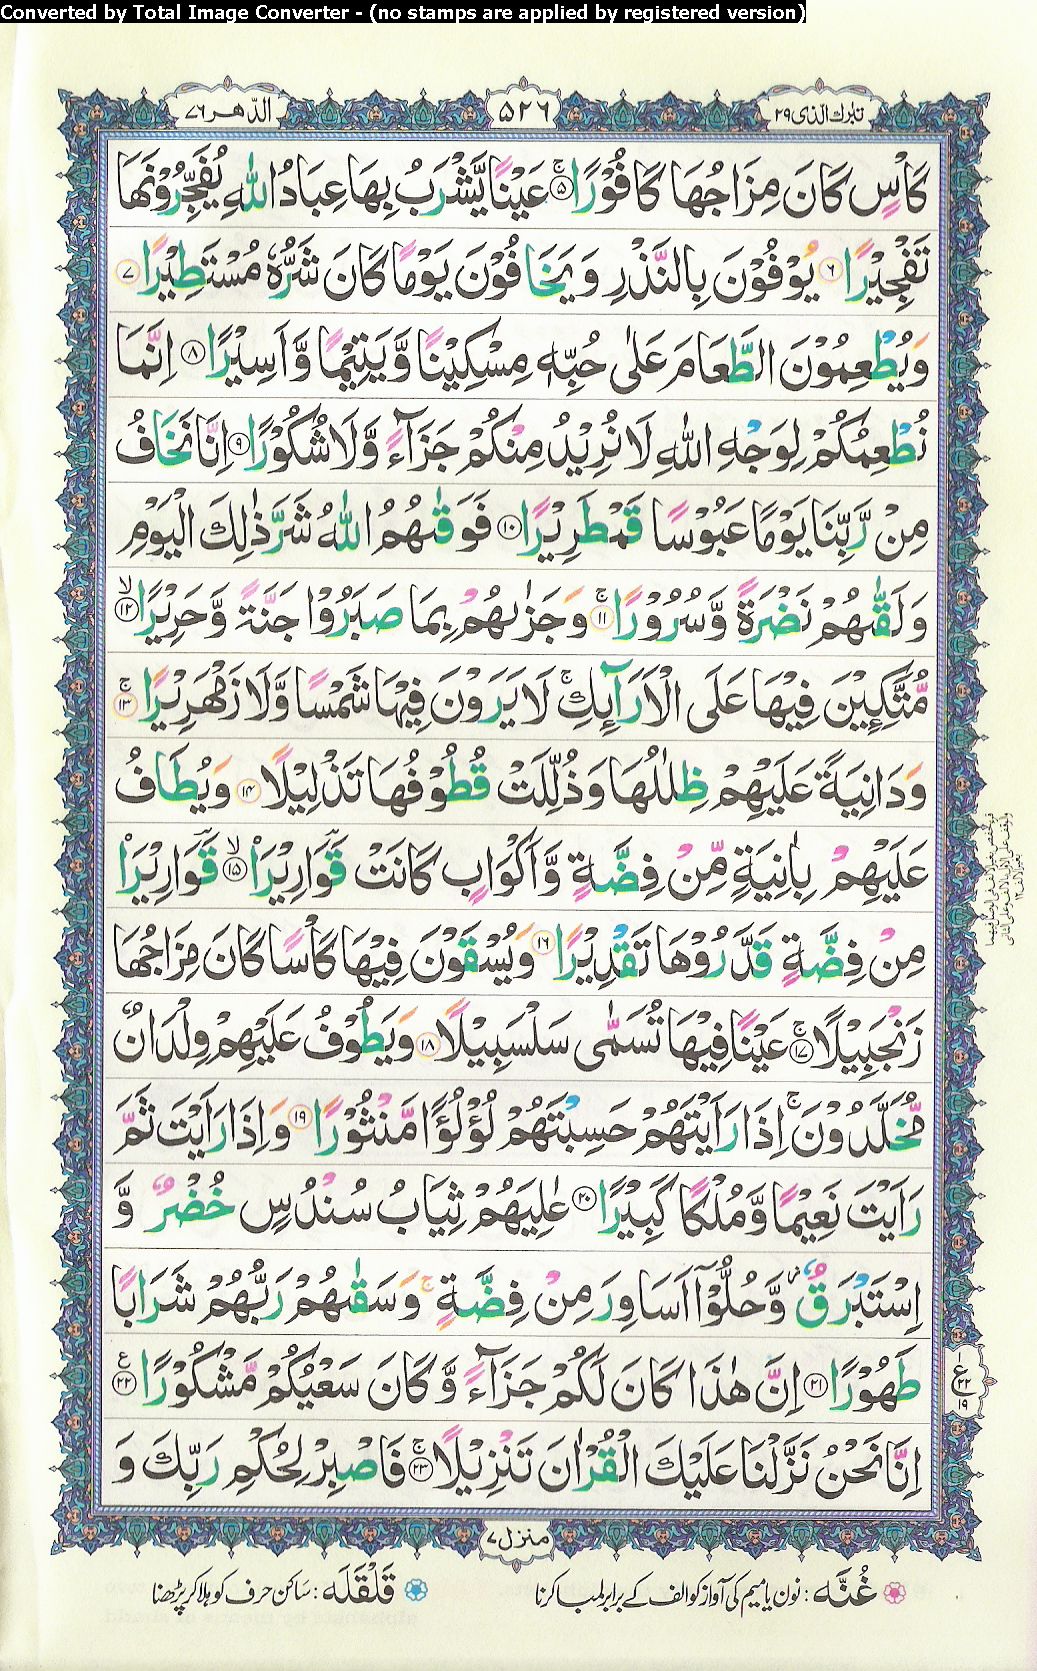 Converted by Total Image Converter - (no stamps are applied by registered version)
تبٰرک الّذی ۲۹
۵۲۶
الدّھر ۷۶
كَاْسٍ كَانَ مِزَاجُهَا كَافُوْرًاۚ ۵ عَيْنًا يَّشْرَبُ بِهَا عِبَادُ اللّٰهِ يُفَجِّرُوْنَهَا
تَفْجِيْرًا ۶ يُوْفُوْنَ بِالنَّذْرِ وَ يَخَافُوْنَ يَوْمًا كَانَ شَرُّهٗ مُسْتَطِيْرًا ۷
وَيُطْعِمُوْنَ الطَّعَامَ عَلٰى حُبِّهٖ مِسْكِيْنًا وَّ يَتِيْمًا وَّ اَسِيْرًا ۸ اِنَّمَا
نُطْعِمُكُمْ لِوَجْهِ اللّٰهِ لَا نُرِيْدُ مِنْكُمْ جَزَآءً وَّ لَا شُكُوْرًا ۹ اِنَّا نَخَافُ
مِنْ رَّبِّنَا يَوْمًا عَبُوْسًا قَمْطَرِيْرًا ۱۰ فَوَقٰىهُمُ اللّٰهُ شَرَّ ذٰلِكَ الْيَوْمِ
وَ لَقّٰىهُمْ نَضْرَةً وَّ سُرُوْرًاۚ ۱۱ وَ جَزٰىهُمْ بِمَا صَبَرُوْا جَنَّةً وَّ حَرِيْرًاۙ ۱۲
مُّتَّكِـِٕيْنَ فِيْهَا عَلَى الْاَرَآىِٕكِۚ لَا يَرَوْنَ فِيْهَا شَمْسًا وَّ لَا زَمْهَرِيْرًاۚ ۱۳
وَ دَانِيَةً عَلَيْهِمْ ظِلٰلُهَا وَ ذُلِّلَتْ قُطُوْفُهَا تَذْلِيْلًا ۱۴ وَ يُطَافُ
عَلَيْهِمْ بِاٰنِيَةٍ مِّنْ فِضَّةٍ وَّ اَكْوَابٍ كَانَتْ قَوَارِيْرَاۡۙ ۱۵ قَوَارِيْرَاۡ
مِنْ فِضَّةٍ قَدَّرُوْهَا تَقْدِيْرًا ۱۶ وَ يُسْقَوْنَ فِيْهَا كَاْسًا كَانَ مِزَاجُهَا
زَنْجَبِيْلًاۚ ۱۷ عَيْنًا فِيْهَا تُسَمّٰى سَلْسَبِيْلًا ۱۸ وَ يَطُوْفُ عَلَيْهِمْ وِلْدَانٌ
مُّخَلَّدُوْنَۚ اِذَا رَاَيْتَهُمْ حَسِبْتَهُمْ لُؤْلُؤًا مَّنْثُوْرًا ۱۹ وَ اِذَا رَاَيْتَ ثَمَّ
رَاَيْتَ نَعِيْمًا وَّ مُلْكًا كَبِيْرًا ۲۰ عٰلِيَهُمْ ثِيَابُ سُنْدُسٍ خُضْرٌ وَّ
اِسْتَبْرَقٌ ؗ وَّ حُلُّوْۤا اَسَاوِرَ مِنْ فِضَّةٍۚ وَ سَقٰىهُمْ رَبُّهُمْ شَرَابًا
طَهُوْرًا ۲۱ اِنَّ هٰذَا كَانَ لَكُمْ جَزَآءً وَّ كَانَ سَعْيُكُمْ مَّشْكُوْرًا ۲۲ ع
اِنَّا نَحْنُ نَزَّلْنَا عَلَيْكَ الْقُرْاٰنَ تَنْزِيْلًاۚ ۲۳ فَاصْبِرْ لِحُكْمِ رَبِّكَ وَ
ع ۲۲ ۱۹
منزل ۷
غُنَّه : نون یا میم کی آواز کو الف کے برابر لمبا کرنا
قَلْقَلَه : ساکن حرف کو ہلا کر پڑھنا